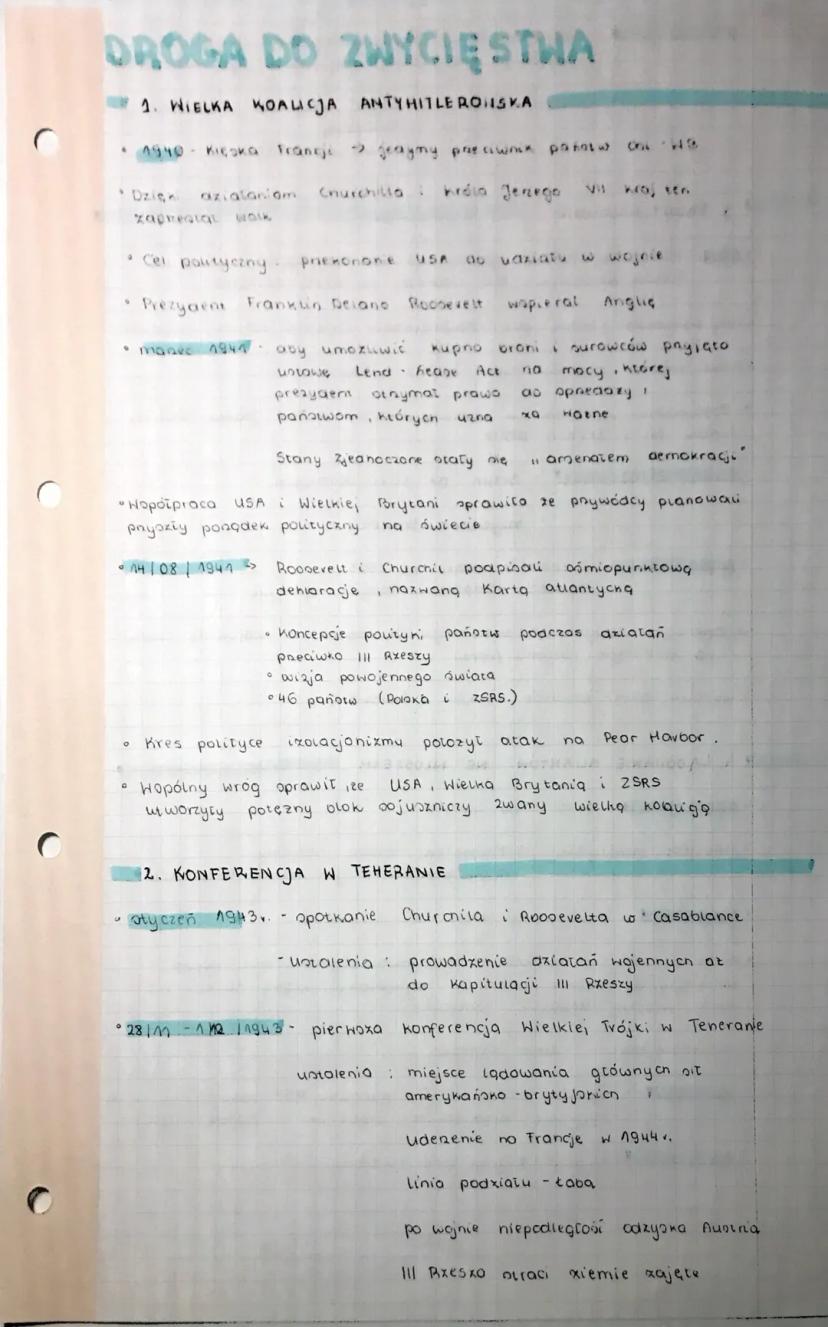 DROGA DO ZWYCIĘSTWA
1. WIELKA KOALICJA ANTYHITLEROWSKA
• 1940 - Klęska Francji → jedyny przeciwnik państw Osi - WB
• Dzięki działaniom Churchilla i króla Jerzego VII kraj ten
zaprzestał walk
• Cel polityczny - przekonanie USA do udziału w wojnie
• Prezydent Franklin Delano Roosevelt wspierał Anglię
• marzec 1941 - aby umożliwić kupno broni i surowców przyjęto
ustawę Lend-Lease Act na mocy, której
prezydent otrzymał prawo do sprzedaży i
państwom, których uzna za ważne
Stany Zjednoczone stały się „arsenałem demokracji"
• Współpraca USA i Wielkiej Brytani sprawiła że przywódcy planowali
przyszły porządek polityczny na świecie
• 14/08/1941 → Roosevelt i Churchil podpisali ośmiopunktową
deklaracje, nazwaną Kartą atlantycką
• Koncepcje polityki państw podczas działań
przeciwko III Rzeszy
• wizja powojennego świata
• 46 państw (Polska i ZSRS.)
• Kres polityce izolacjonizmu położył atak na Pearl Harbor.
• Wspólny wróg sprawił, że USA, Wielka Brytania i ZSRS
utworzyły potężny blok sojuszniczy zwany wielką koalicją
2. KONFERENCJA W TEHERANIE
• styczeń 1943r. - spotkanie Churchila i Roosevelta w Casablance
- ustalenia : prowadzenie działań wojennych aż
do kapitulacji III Rzeszy
• 28/11 - 1/12/1943 - pierwsza konferencja Wielkiej Trójki w Teheranie
ustalenia : miejsce lądowania głównych sił
amerykańsko - brytyjskich
uderzenie na Francje w 1944r.
linia podziału - Łaba
po wojnie niepodległość odzyska Austria
III Rzesza straci ziemie zajęte